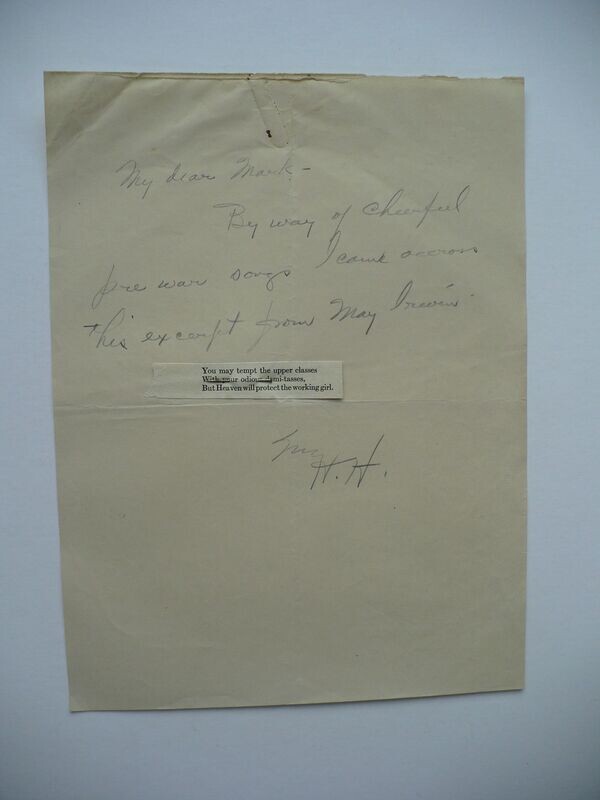 My dear Mark —
By way of cheerful
pre war songs I came accross
this excerpt from May Irwin
You may tempt the upper classes
With your odious demi-tasses,
But Heaven will protect the working girl.
H. H.